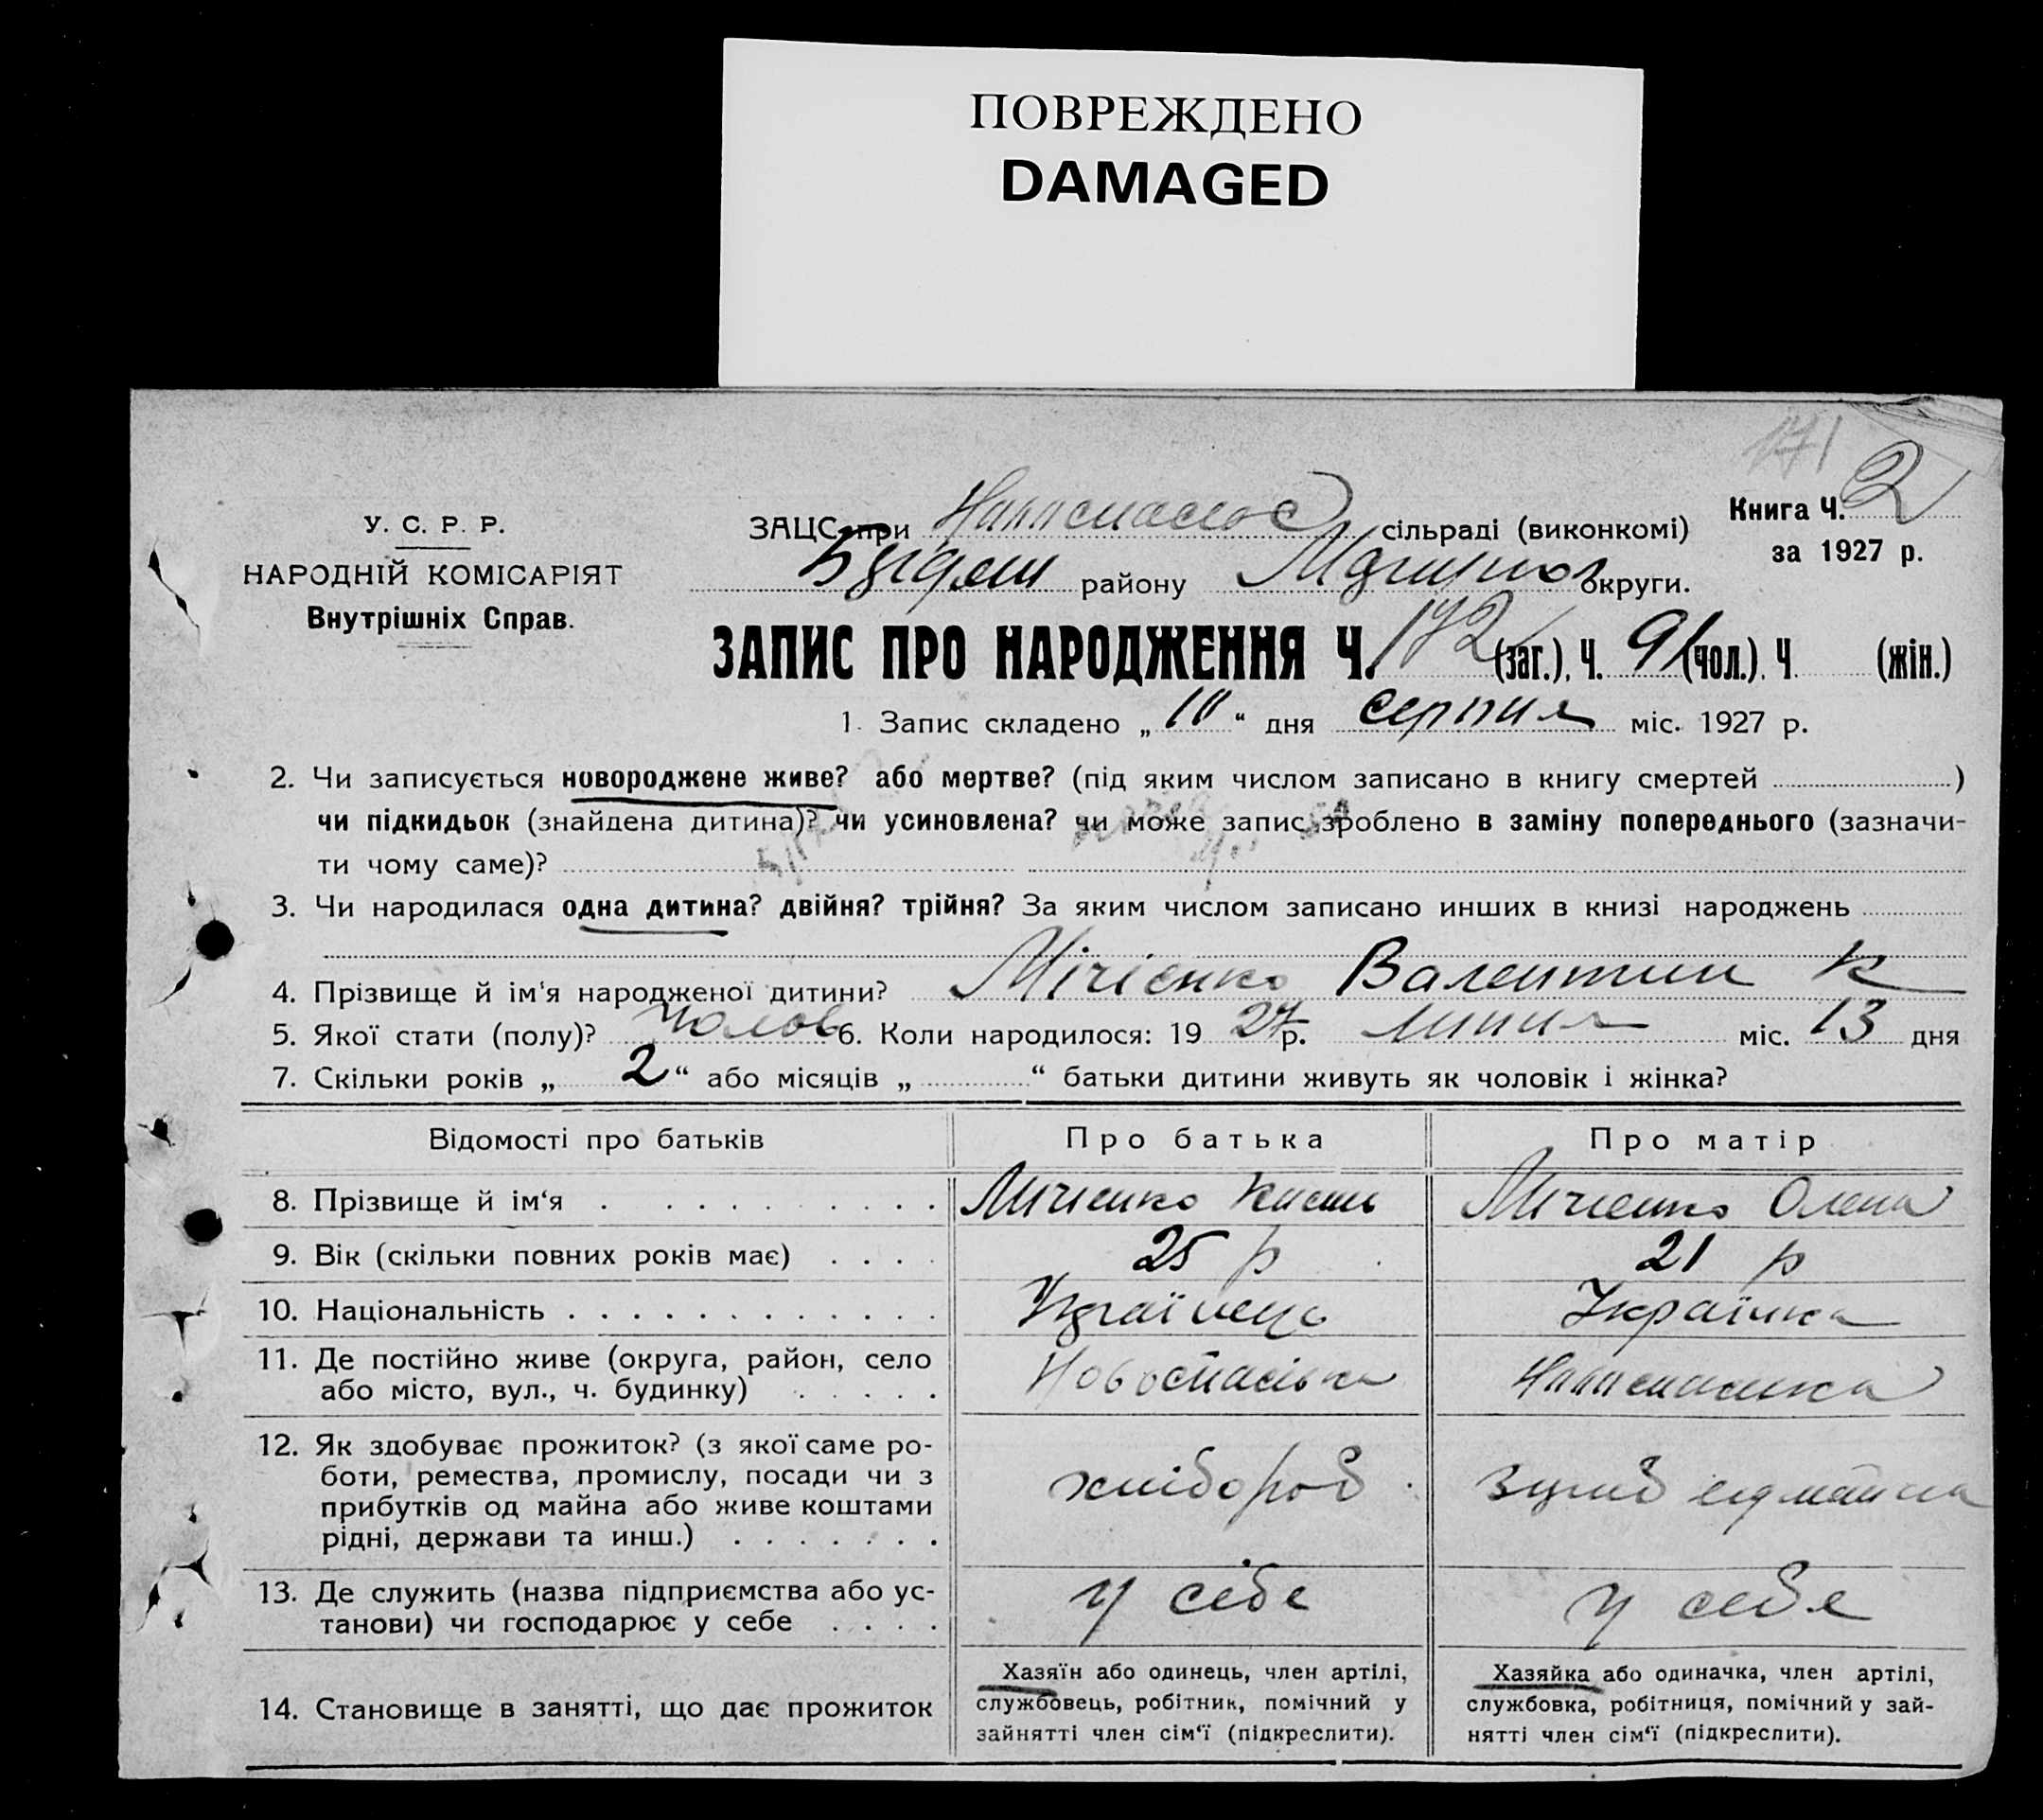 ПОВРЕЖДЕНО
DAMAGED
171
У. С. Р. Р.
НАРОДНІЙ КОМІСАРІЯТ
Внутрішніх Справ.
ЗАЦС при сільраді (виконкомі)
району округи.
Книга Ч. 2
за 1927 р.
ЗАПИС ПРО НАРОДЖЕННЯ Ч. 172 (заг.), Ч. 91 (чол.). Ч. (жін.)
1. Запис складено „10“ дня серпня міс. 1927 р.
2. Чи записується новороджене живе? або мертве? (під яким числом записано в книгу смертей )
чи підкидьок (знайдена дитина)? чи усиновлена? чи може запис зроблено в заміну попереднього (зазначи-
ти чому саме)?
3. Чи народилася одна дитина? двійня? трійня? За яким числом записано инших в книзі народжень
4. Прізвище й ім'я народженої дитини? Мічієнко Валентин К
5. Якої стати (полу)? чолов 6. Коли народилося: 19 27 р. липня міс. 13 дня
7. Скільки років „ 2 “ або місяців „ “ батьки дитини живуть як чоловік і жінка?
Відомості про батьків Про батька Про матір
8. Прізвище й ім‘я Мічієнко Мічієнко Олена
9. Вік (скільки повних років має) 25 р 21 р
10. Національність Українець Українка
11. Де постійно живе (округа, район, село
або місто, вул., ч. будинку) Новоспасівка
12. Як здобуває прожиток? (з якої саме ро-
боти, ремества, промислу, посади чи з
прибутків од майна або живе коштами
рідні, держави та инш.) хлібороб
13. Де служить (назва підприємства або ус-
танови) чи господарює у себе у сібе у себе
14. Становище в занятті, що дає прожиток
Хазяїн або одинець, член артілі,
службовець, робітник, помічний у
зайнятті член сім‘ї (підкреслити).
Хазяйка або одиначка, член артілі,
службовка, робітниця, помічний у зай-
нятті член сім‘ї (підкреслити).